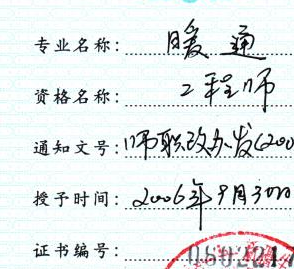 专业名称: 暖通
资格名称: 工程师
通知文号: 师职改办发(200
授予时间: 2006年9月30日
证书编号: 0802217